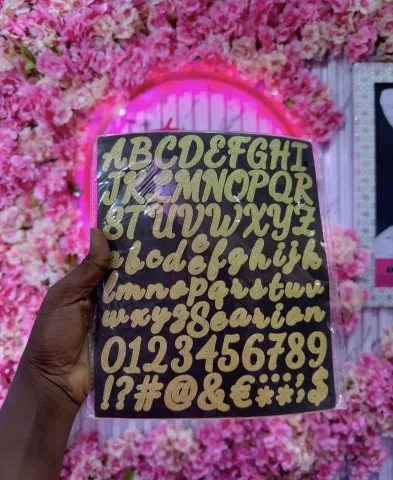 ABCDEFGHI
JKLMNOPQR
STUVWXYZ
abcdefghijk
lmnopqrstuv
wxyz
0123456789
!?#@&€
$